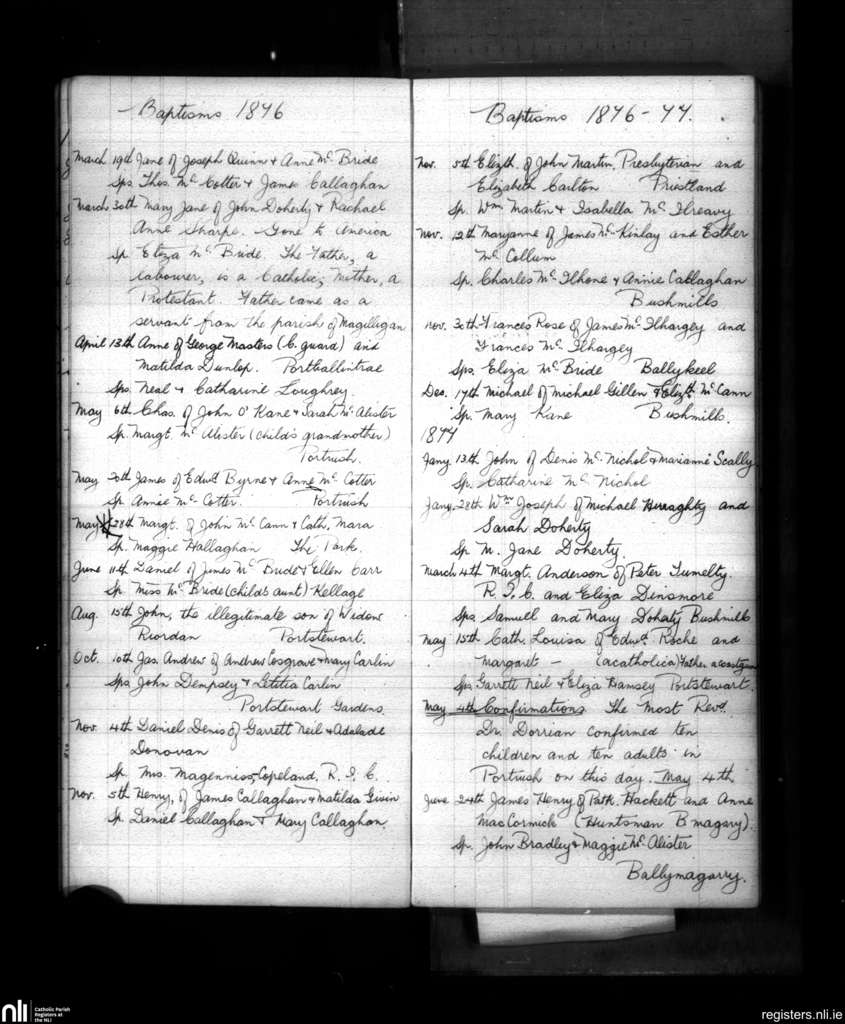 Baptisms 1876
March 19th Jane of Joseph Quinn & Anne Mc Bride
Sps. Thos. Mc Cotter & James Callaghan
March 30th Mary Jane of John Doherty & Rachael
Anne Sharpe. Gone to America
Sp. Eliza Mc Bride. The Father, a
labourer, is a Catholic; Mother, a
Protestant. Father came as a
servant from the parish of Magilligan
April 13th Anne of George Masters (C. guard) and
Matilda Dunlop. Portballintrae
Sps. Neal & Catharine Loughrey.
May 6th Chas. of John O' Kane & Sarah Mc Alister
Sp. Margt. Mc Alister (child's grandmother)
Portrush.
May 20th James of Edwd. Byrne & Anne Mc Cotter
Sp. Annie Mc Cotter. Portrush
May 28th Margt. of John Mc Cann & Cath. Mara
Sp. Maggie Hallaghan The Park.
June 11th Daniel of James Mc Bride & Ellen Carr
Sp. Miss Mc Bride (child's aunt) Kellage
Aug. 15th John, the illegitimate son of Widow
Riordan Portstewart.
Oct. 10th Jas. Andrew of Andrew Cosgrove & Mary Carlin
Sps. John Dempsey & Letitia Carlin
Portstewart Gardens.
Nov. 4th Daniel Denis of Garrett Neil & Adelade
Donovan
Sp. Mrs. Magenniss, Copeland, R. I. C.
Nov. 5th Henry, of James Callaghan & Matilda Givin
Sp. Daniel Callaghan & Mary Callaghan.
Baptisms 1876-77.
Nov. 5th Elizth. of John Martin, Presbyterian and
Elizabeth Carlton Priestland
Sp. Wm Martin & Isabella Mc Ilreavy
Nov. 12th Maryanne of James Mc Kinlay and Esther
Mc Collum
Sp. Charles Mc Ilhone & Annie Callaghan
Bushmills
Nov. 30th Frances Rose of James Mc Ilhargey and
Frances Mc Ilhargey
Sps. Eliza Mc Bride Ballykeel
Dec. 17th Michael of Michael Gillen & Elizth. Mc Cann
Sp. Mary Kane Bushmills.
1877
Jany. 13th John of Denis Mc Nichol & Marianne Scally.
Sp. Catharine Mc Nichol
Jany. 28th Wm Joseph of Michael Heraghty and
Sarah Doherty
Sp. M. Jane Doherty.
March 4th Margt. Anderson of Peter Tumelty.
R. I. C. and Eliza Dinsmore
Sps. Samuel and Mary Doherty Bushmills
May 15th Cath. Louisa of Edwd. Roche and
Margaret - (acatholica) Father a coastguard
Sps. Garrett Neil & Eliza Hamsey Portstewart.
May 4th Confirmations The Most Revd.
Dr. Dorrian confirmed ten
children and ten adults in
Portrush on this day. May 4th
June 24th James Henry of Patk. Hackett and Anne
MacCormick (Huntsman B magary).
Sp. John Bradley & Maggie Mc Alister
Ballymagarry.
nli
Catholic Parish
Registers at
the NLI
registers.nli.ie